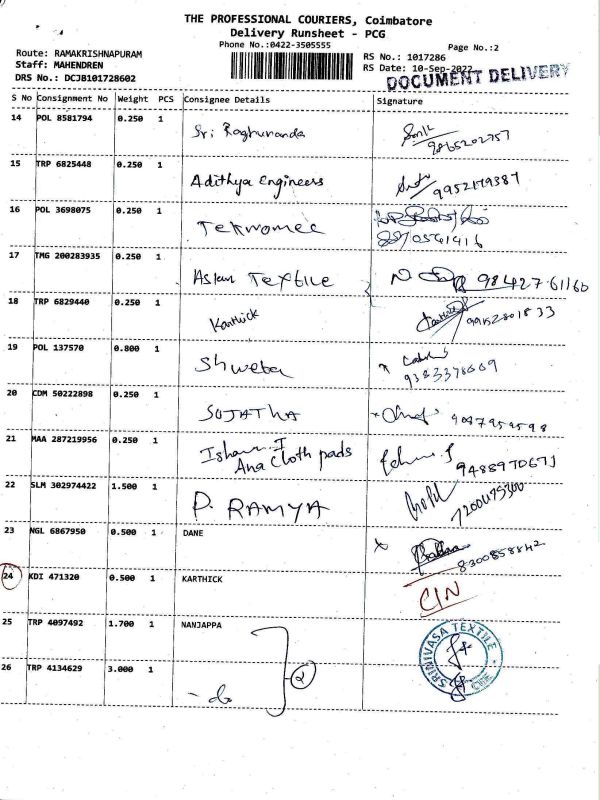 THE PROFESSIONAL COURIERS, Coimbatore
Delivery Runsheet - PCG
Phone No.:0422-3505555
Page No.:2
Route: RAMAKRISHNAPURAM
RS No.: 1017286
Staff: MAHENDREN
RS Date: 10-Sep-2022
DRS No.: DCJB101728602
DOCUMENT DELIVERY
S No Consignment No Weight PCS Consignee Details Signature
14 POL 8581794 0.250 1 Sri Raghunanda
9865202757
15 TRP 6825448 0.250 1 Adithya Engineers
9952179387
16 POL 3698075 0.250 1 Tekwomec
8870541416
17 TMG 200283935 0.250 1 Asian Textile 98427 61160
18 TRP 6829440 0.250 1 Karthick
19 POL 137570 0.800 1 Shweta
9383378669
20 CDM 50222898 0.250 1 SUJATHA
21 MAA 287219956 0.250 1 Ishana I
Ana Cloth pads
22 SLM 302974422 1.500 1 P. RAMYA
7200475300
23 NGL 6867950 0.500 1 DANE
8300858842
24 KDI 471320 0.500 1 KARTHICK
CIN
25 TRP 4097492 1.700 1 NANJAPPA
SRINIVASA TEXTILE
26 TRP 4134629 3.000 1 - do
2
CBE